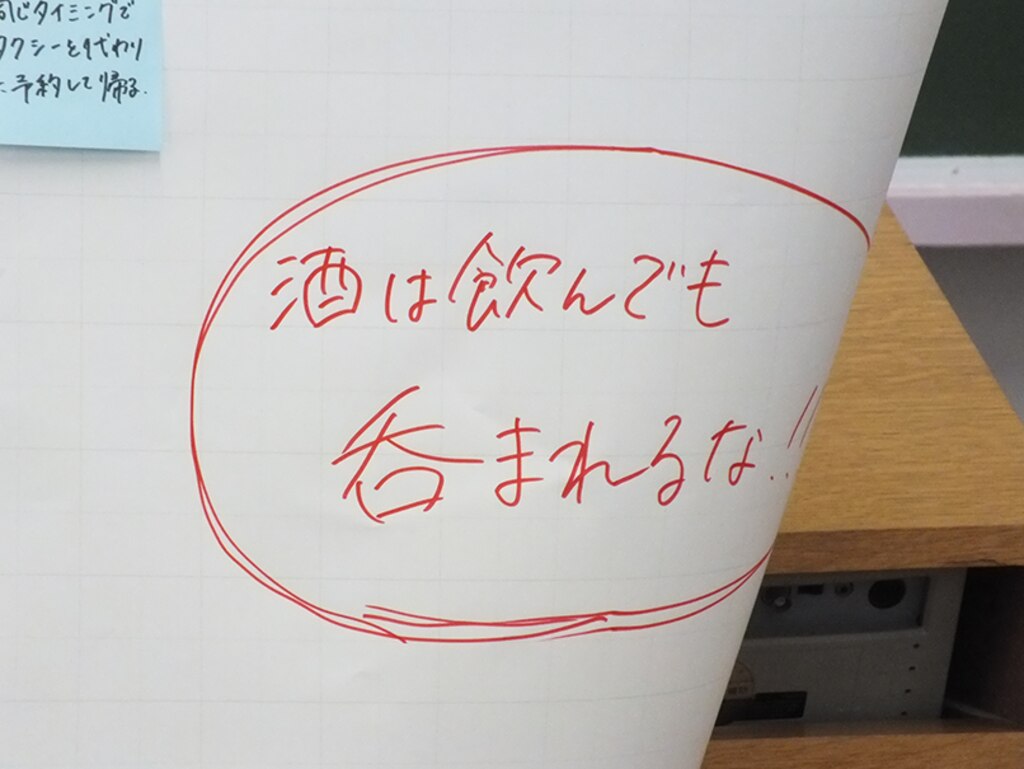 同じタイミングで
タクシーを代わり
に予約して帰る.
酒は飲んでも
呑まれるな!!